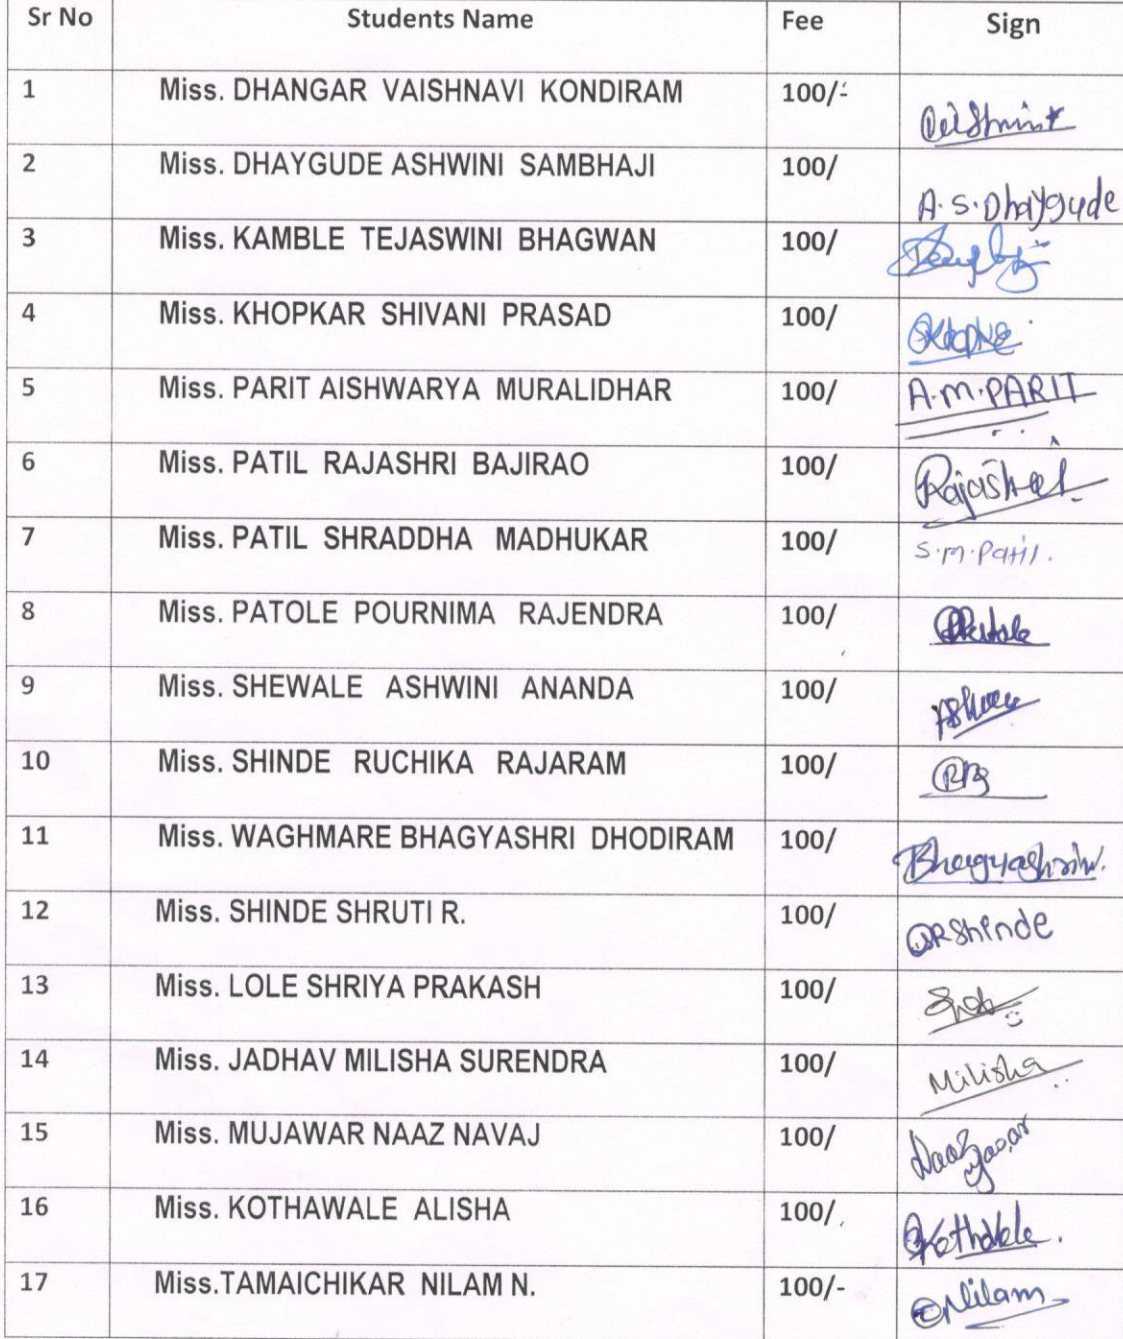 Sr No Students Name Fee Sign
1 Miss. DHANGAR VAISHNAVI KONDIRAM 100/-
2 Miss. DHAYGUDE ASHWINI SAMBHAJI 100/ A.S.Dhaygude
3 Miss. KAMBLE TEJASWINI BHAGWAN 100/
4 Miss. KHOPKAR SHIVANI PRASAD 100/
5 Miss. PARIT AISHWARYA MURALIDHAR 100/ A.M.PARIT
6 Miss. PATIL RAJASHRI BAJIRAO 100/
7 Miss. PATIL SHRADDHA MADHUKAR 100/ S.M.Patil.
8 Miss. PATOLE POURNIMA RAJENDRA 100/
9 Miss. SHEWALE ASHWINI ANANDA 100/
10 Miss. SHINDE RUCHIKA RAJARAM 100/
11 Miss. WAGHMARE BHAGYASHRI DHODIRAM 100/
12 Miss. SHINDE SHRUTI R. 100/ SRShinde
13 Miss. LOLE SHRIYA PRAKASH 100/
14 Miss. JADHAV MILISHA SURENDRA 100/ Milisha
15 Miss. MUJAWAR NAAZ NAVAJ 100/
16 Miss. KOTHAWALE ALISHA 100/
17 Miss.TAMAICHIKAR NILAM N. 100/- Nilam